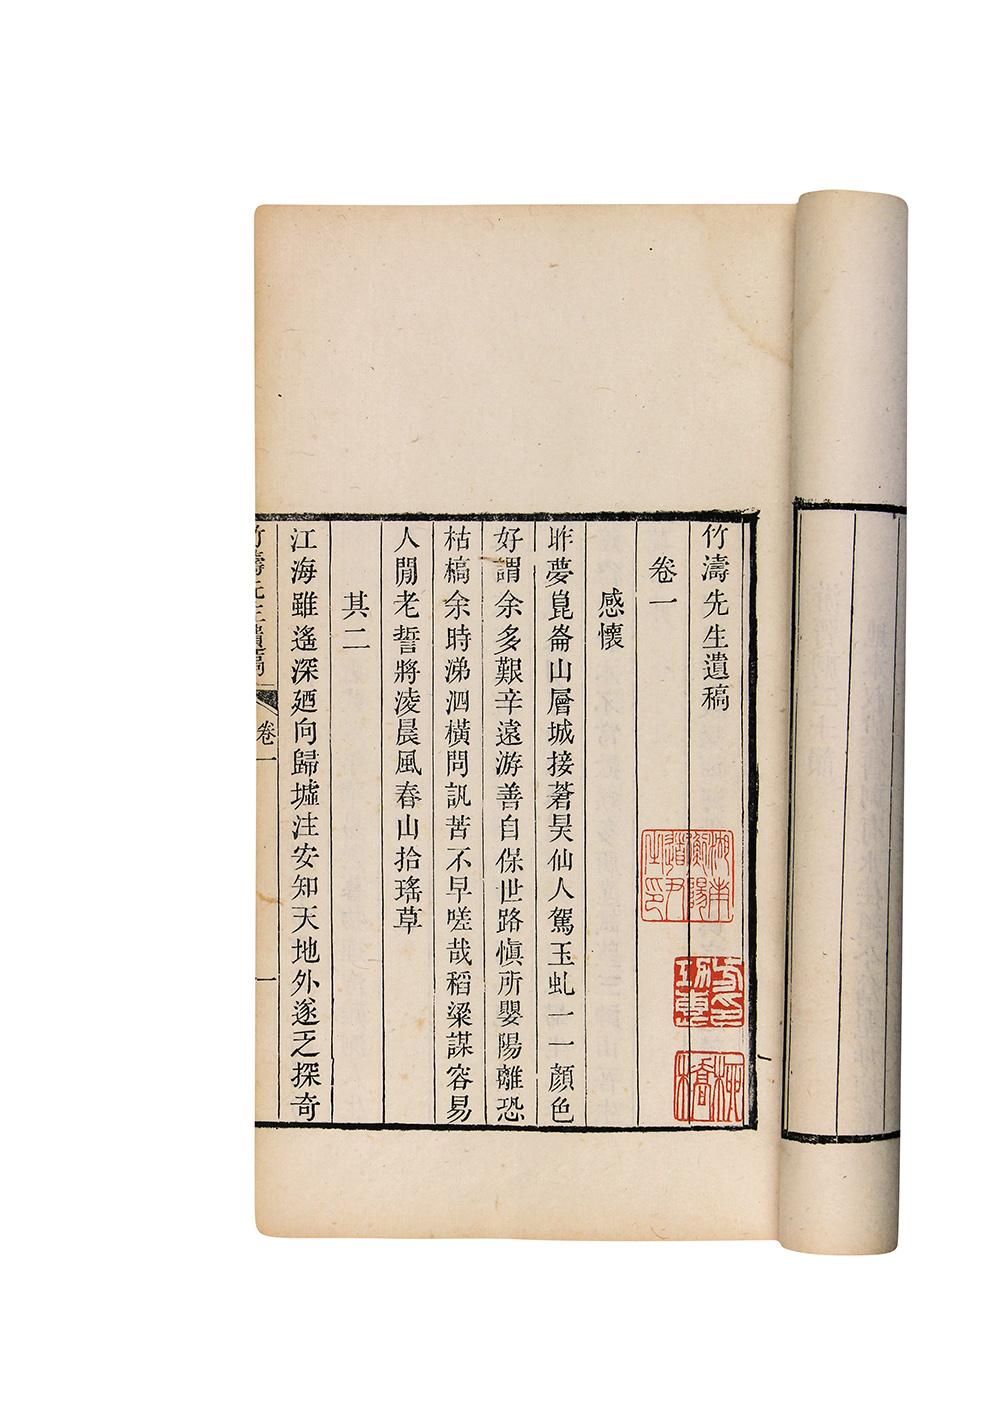 竹濤先生遺稿
卷一
感懷
昨夢崑崙山層城接蒼昊仙人駕玉虬一一顏色
好謂余多艱辛遠游善自保世路慎所嬰陽離恐
枯槁余時涕泗橫問訊苦不早嗟哉稻粱謀容易
人閒老誓將淩晨風春山拾瑤草
其二
江海雖遙深廼向歸墟注安知天地外遂乏探奇
竹濤先生遺稿
卷一
一
湘南衡陽道尹之印
方功惠印
柳橋